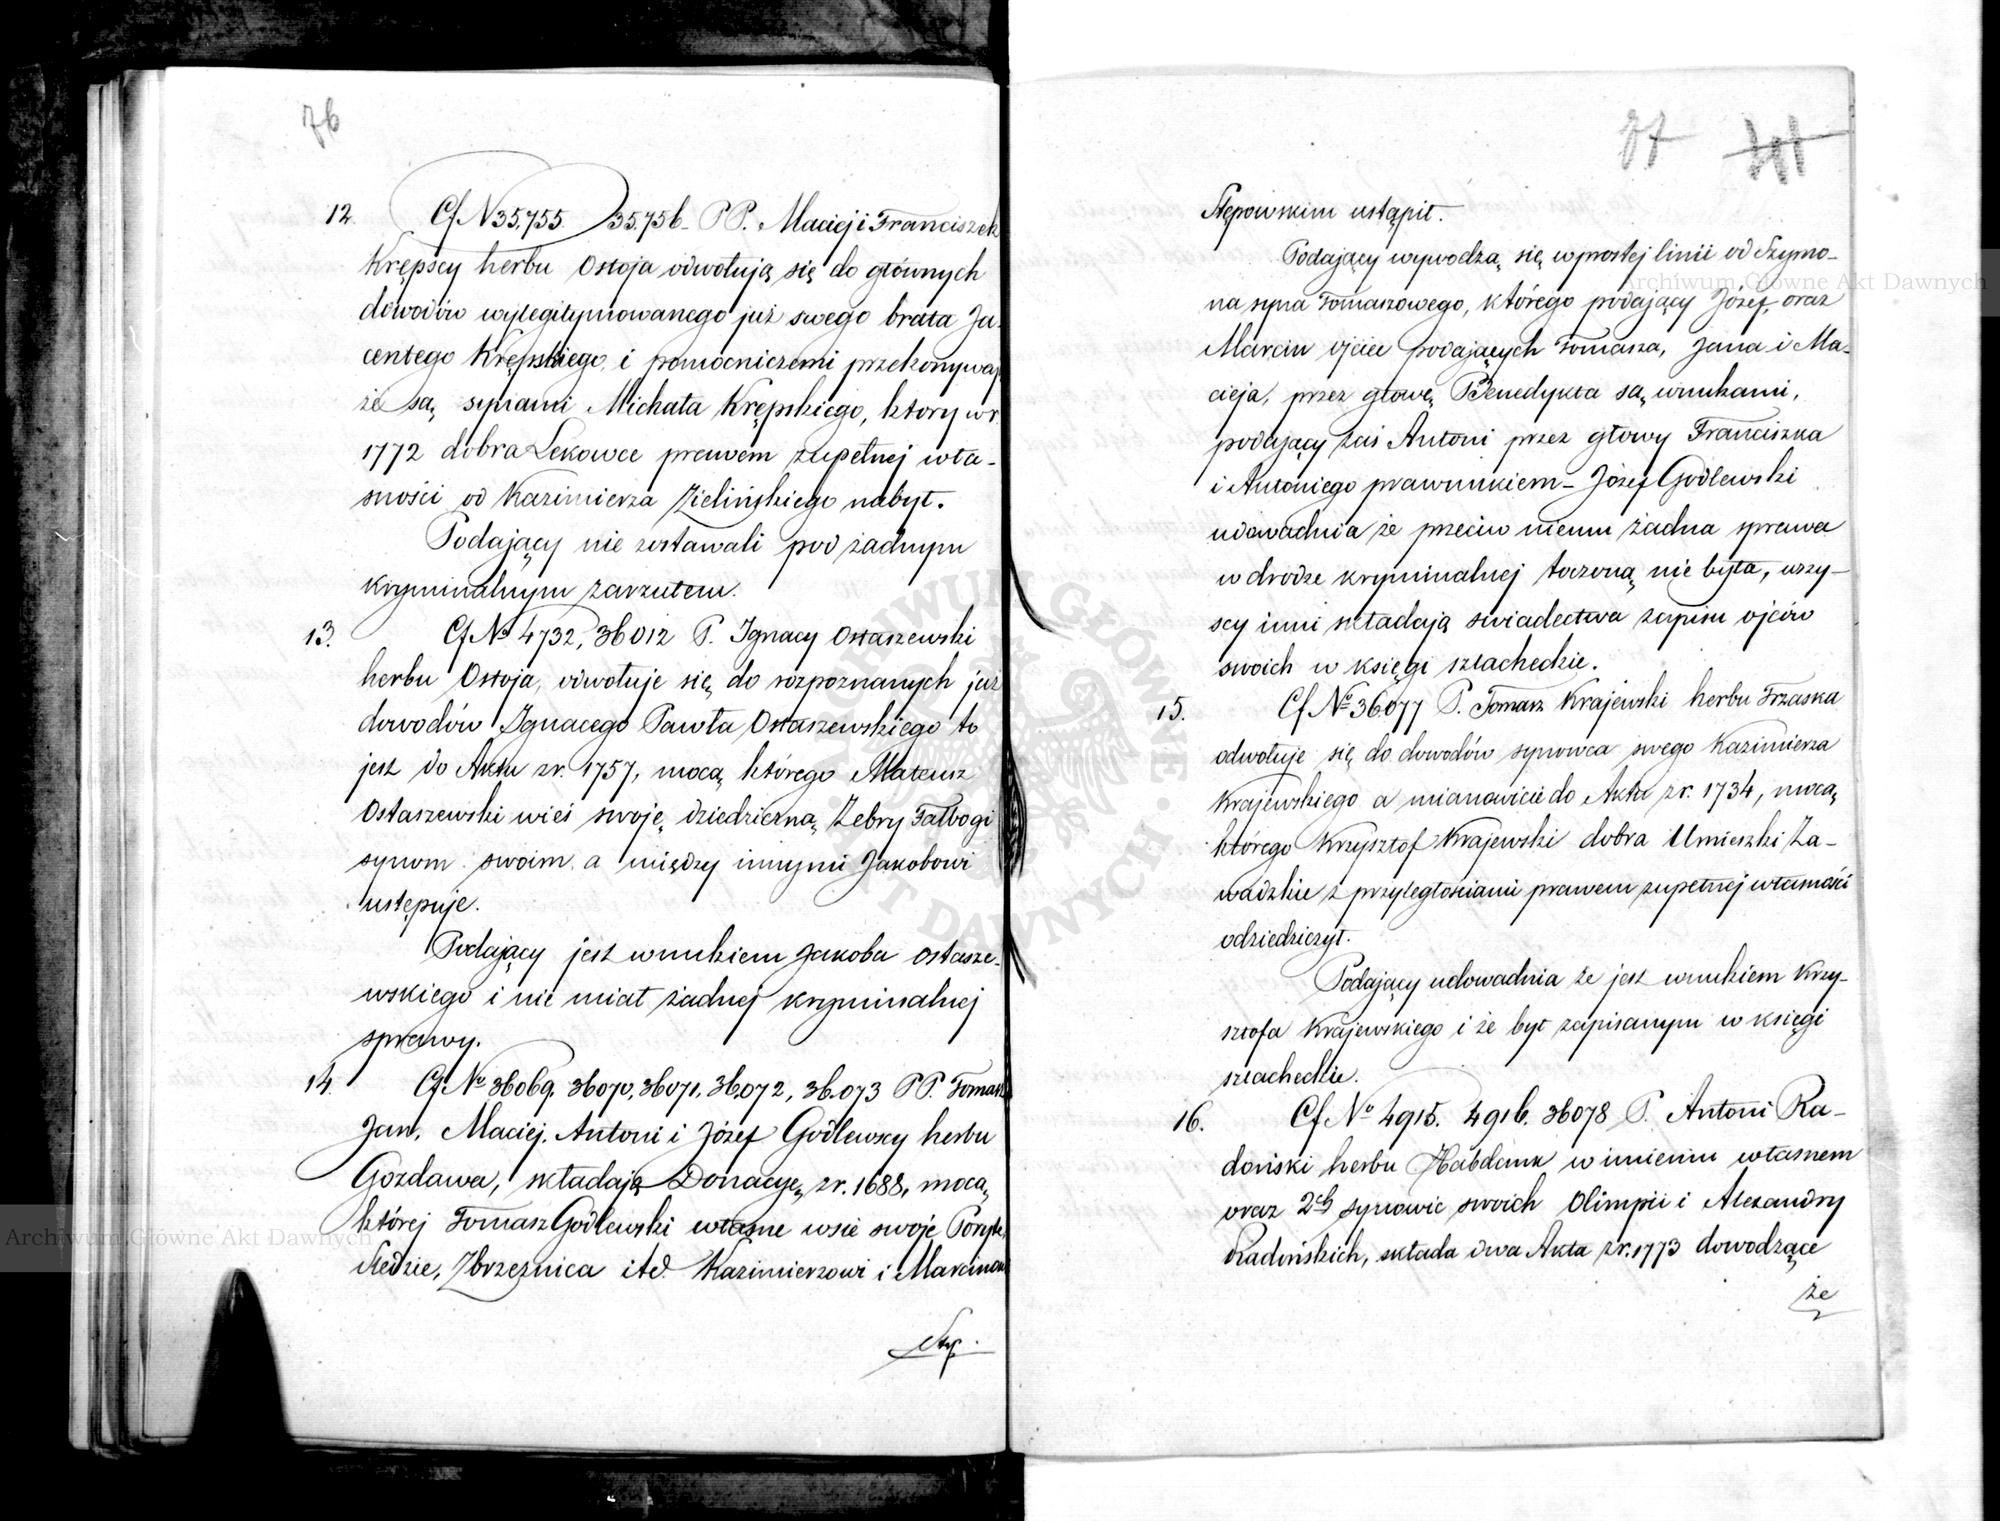 76
12. Cf N 35,755. 35.756_ P P. Maciej i Franciszek
Krępscy herbu Ostoja odwołują się do głównych
dowodów wylegitymowanego już swego brata Ja-
centego Krępskiego, i pomocniczemi przekonywają
że są synami Michała Krępskiego, ktory w r.
1772 dobra Lekowce prawem zupełnej wła-
sności od Kazimierza Zielińskiego nabył.
Podający nie zostawali pod żadnym
kryminalnym zarzutem.
13. Cf No 4732, 36012 P. Ignacy Ostaszewski
herbu Ostoja, odwołuje się do rozpoznanych już
dowodów Ignacego Pawła Ostaszewskiego to
jest do Aktu zr. 1757, mocą którego Mateusz
Ostaszewski wieś swoję dziedziczną Zebry Falbogi
synom swoim a między innymi Jakobowi
ustępuje.
Podający jest wnukiem Jakoba Ostasze-
wskiego i nie miał żadnej kryminalnej
sprawy.
14. Cf No 36069, 36070, 36071, 36,072, 36,073 P P. Tomasz
Jan, Maciej, Antoni i Józef Godlewscy herbu
Gozdawa, składają Donacyę zr. 1688, mocą
której Tomasz Godlewski własne wsie swoje
Zbrzeznica itd. Kazimierzowi i Marcinowi
Stę.
77
Stępowskim ustąpił.
Podający wywodzą się w prostej linii od Szymo-
na syna Tomaszowego, którego podający Józef, oraz
Marcin ojciec podających Tomasza, Jana i Ma-
cieja, przez głowę Benedykta są wnukami,
podający zaś Antoni przez głowy Franciszka
i Antoniego prawnukiem_ Józef Godlewski
udowadnia że przeciw niemu żadna sprawa
w drodze kryminalnej toczoną nie była, wszy-
scy inni składają świadectwa zapisu ojców
swoich w księgi szlacheckie.
15. Cf No 36077 P. Tomasz Krajewski herbu Trzaska
odwołuje się do dowodów synowca swego Kazimierza
Krajewskiego a mianowicie do Aktu zr. 1734, mocą
którego Krzysztof Krajewski dobra Umieszki Za-
wadzkie z przyległościami prawem zupełnej własności
odziedziczył.
Podający udowadnia że jest wnukiem Krzy-
sztofa Krajewskiego i że był zapisanym w księgi
szlacheckie.
16. Cf No 4915. 4916. 36078 P. Antoni Ra-
doński herbu Habdank w imieniu własnem
oraz 2ch synowic swoich Olimpii i Alexandry
Radońskich, składa dwa Akta zr. 1773 dowodzące
że
Archiwum Główne Akt Dawnych
Archiwum Główne Akt Dawnych
ARCHIWUM GŁÓWNE AKT DAWNYCH